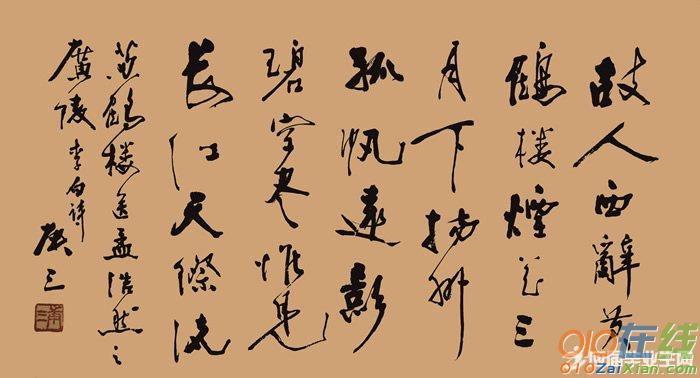 故人西辭黄
鶴楼煙花三
月下揚州
孤帆遠影
碧空尽惟見
長江天際流
黄鶴楼送孟浩然之
廣陵 李白詩
010在线
010ZaiXian.com